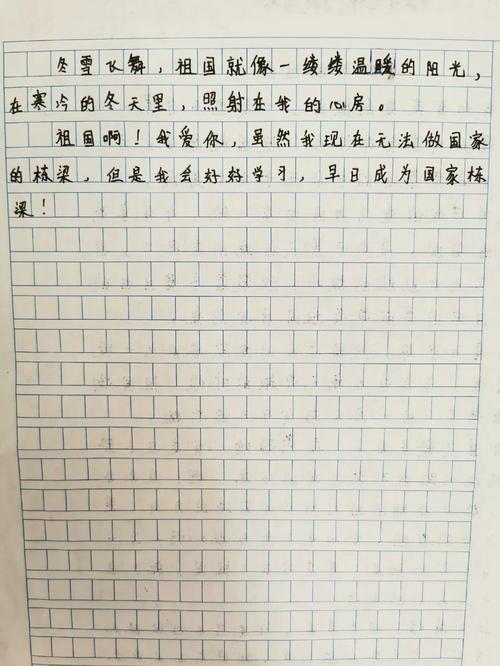 冬雪飞舞，祖国就像一缕缕温暖的阳光，
在寒冷的冬天里，照射在我的心房。
祖国啊！我爱你，虽然我现在无法做国家
的栋梁，但是我会好好学习，早日成为国家栋
梁！